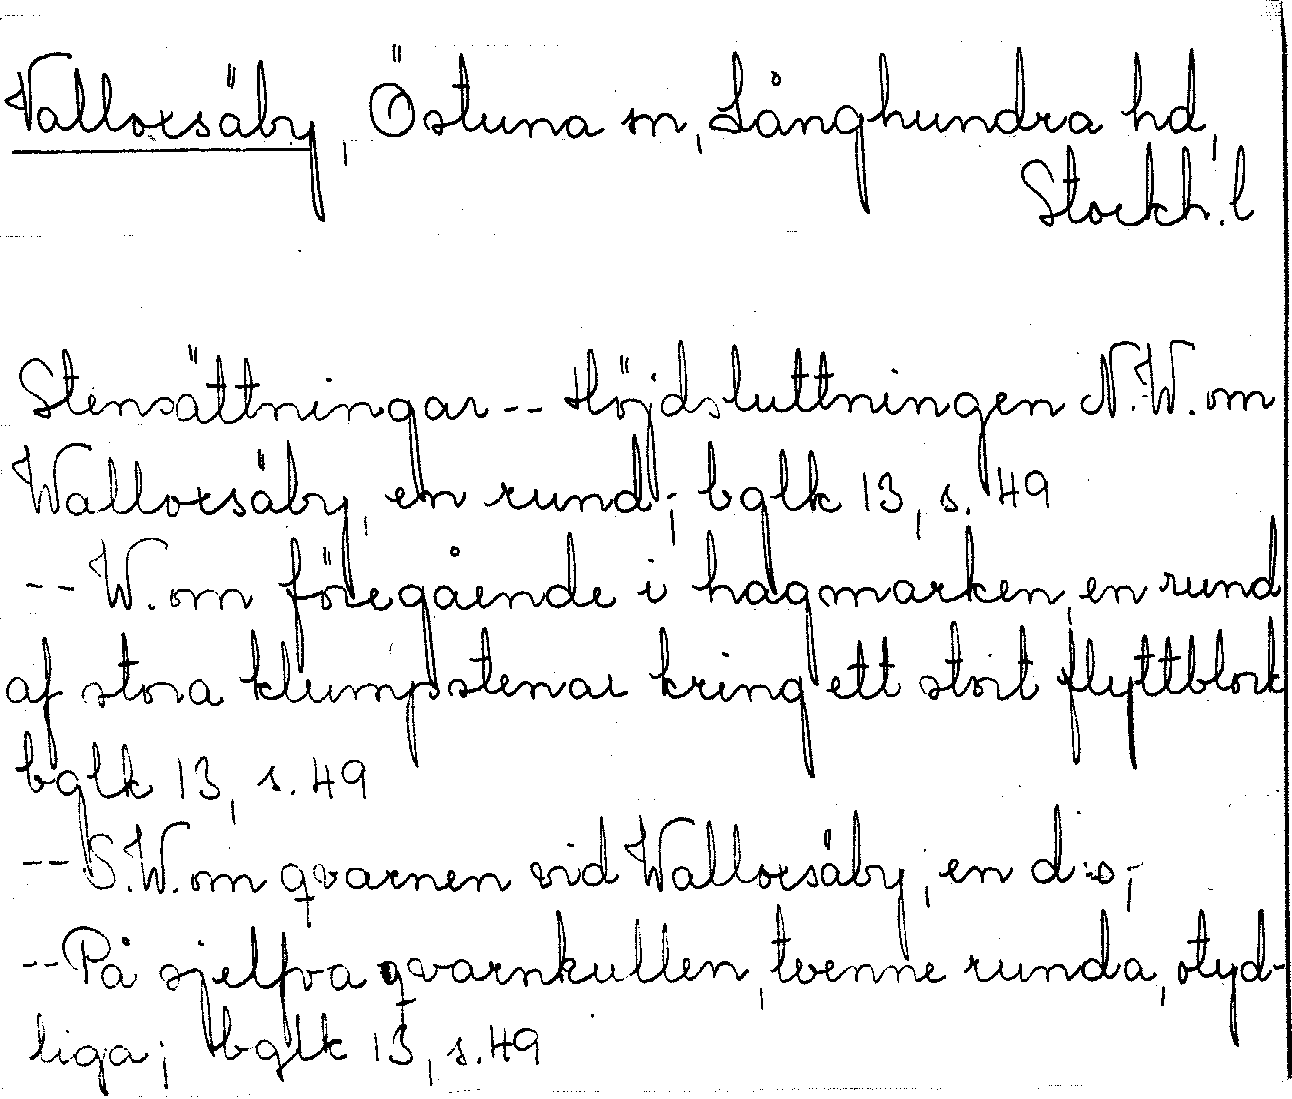 Valloxsäby, Östuna sn, Långhundra hd,
Stockh. l
Stensättningar -- Höjdsluttningen N.W. om
Walloxsäby, en rund; bglk 13, s. 49
-- W. om föregående i hagmarken, en rund
af stora klumpstenar kring ett stort flyttblock
bglk 13, s. 49
-- S.W. om qvarnen vid Walloxsäby, en d:o;
-- På sjelfva qvarnkullen, tvenne runda, otyd-
liga; bglk 13, s. 49